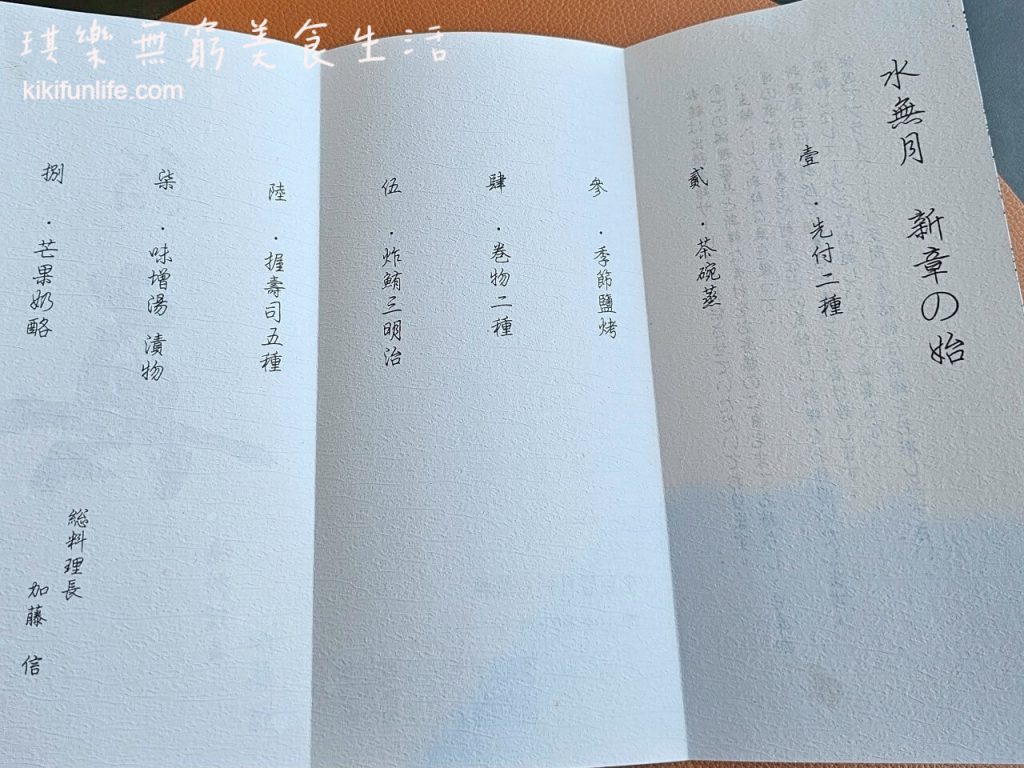 琪樂無窮美食生活
kikifunlife.com
水無月 新章の始
壹・先付二種
貳・茶碗蒸
參・季節鹽烤
肆・卷物二種
伍・炸鮪三明治
陸・握壽司五種
柒・味增湯 漬物
捌・芒果奶酪
総料理長
加藤 信